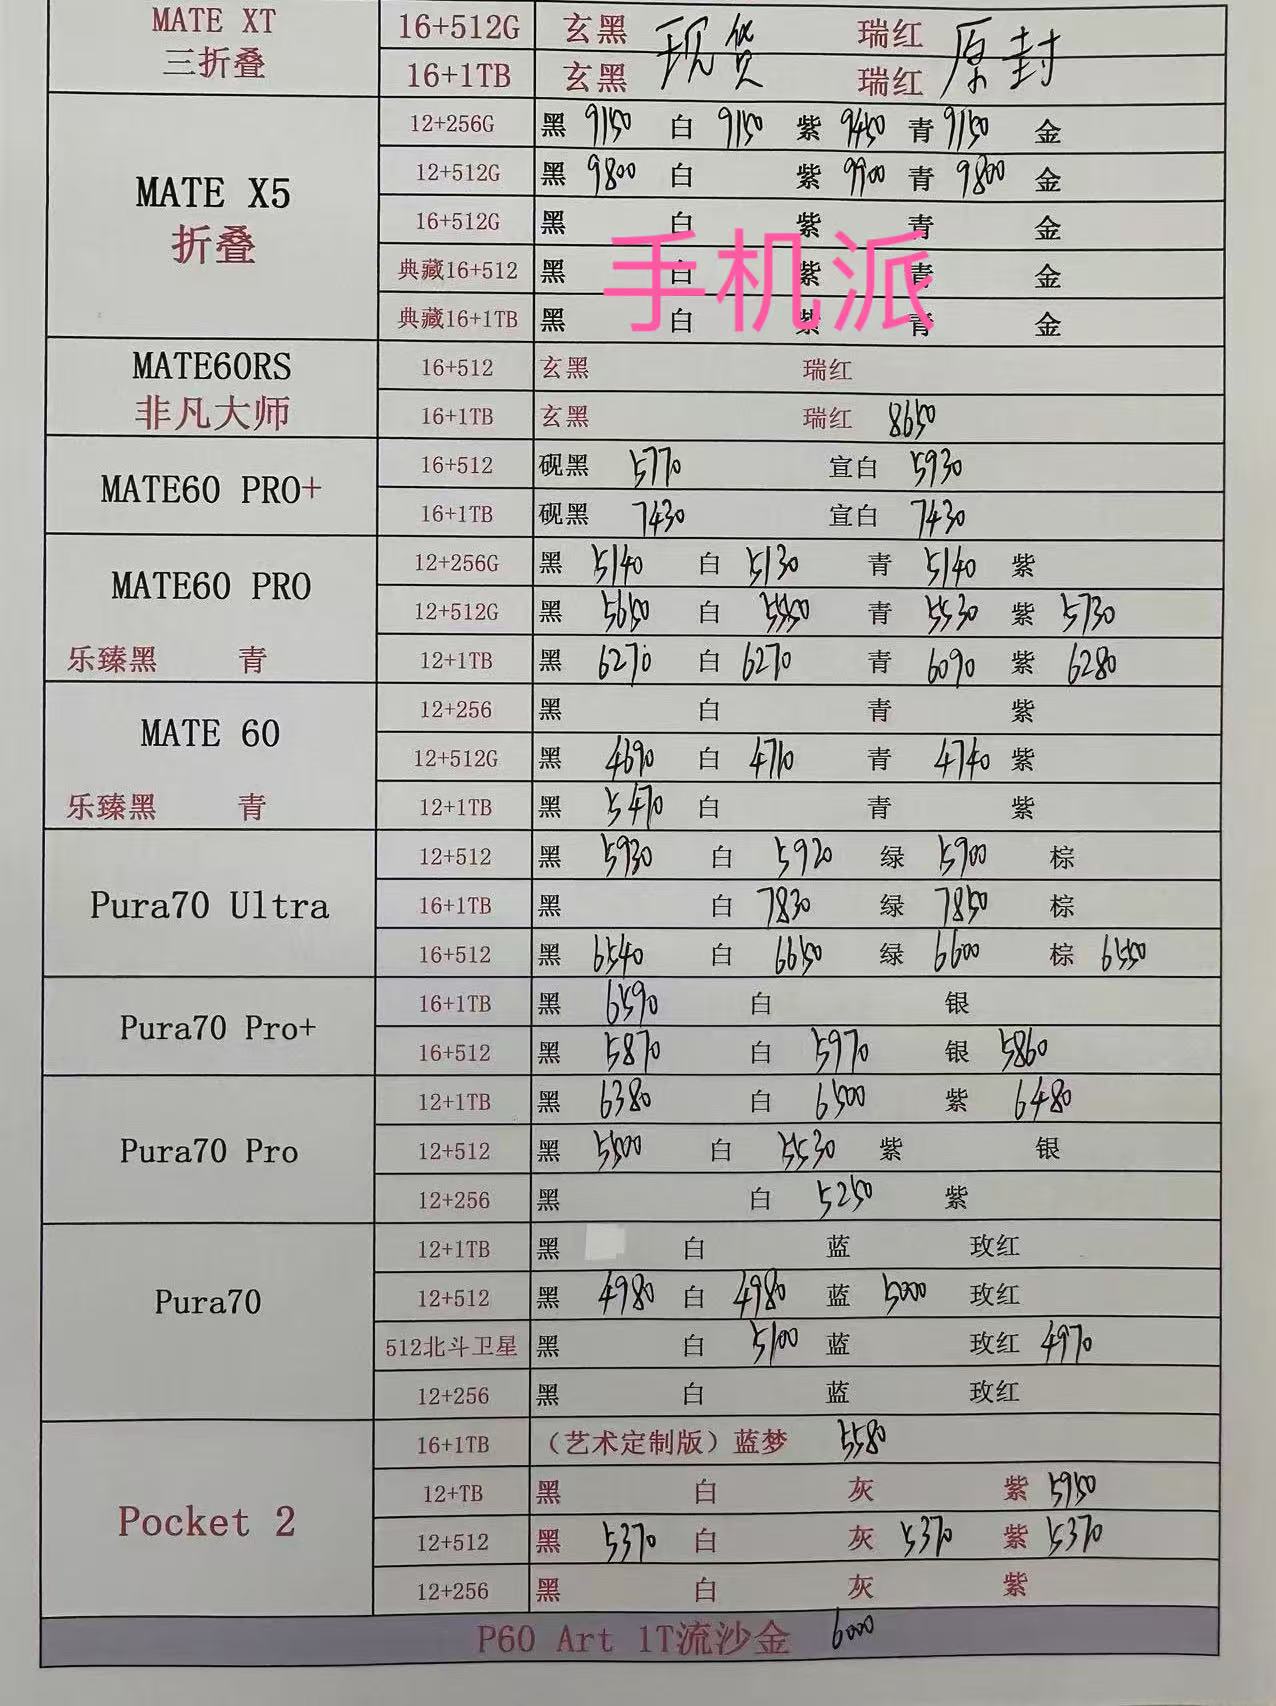 MATE XT 16+512G 玄黑 现货 瑞红 原封
三折叠 16+1TB 玄黑 瑞红
12+256G 黑 9150 白 9150 紫 9450 青 9150 金
12+512G 黑 9800 白 紫 9900 青 9800 金
MATE X5 16+512G 黑 白 紫 青 金
折叠 典藏16+512 黑 白 紫 青 金
手机派
典藏16+1TB 黑 白 紫 青 金
MATE60RS 16+512 玄黑 瑞红
非凡大师 16+1TB 玄黑 瑞红 8650
MATE60 PRO+ 16+512 砚黑 5770 宣白 5930
16+1TB 砚黑 7430 宣白 7430
MATE60 PRO 12+256G 黑 5140 白 5130 青 5140 紫
12+512G 黑 5650 白 5550 青 5530 紫 5730
乐臻黑 青 12+1TB 黑 6270 白 6270 青 6090 紫 6280
MATE 60 12+256 黑 白 青 紫
12+512G 黑 4690 白 4710 青 4740 紫
乐臻黑 青 12+1TB 黑 5470 白 青 紫
12+512 黑 5930 白 5920 绿 5900 棕
Pura70 Ultra 16+1TB 黑 白 7830 绿 7850 棕
16+512 黑 6540 白 6650 绿 6600 棕 6550
Pura70 Pro+ 16+1TB 黑 6590 白 银
16+512 黑 5870 白 5970 银 5860
12+1TB 黑 6380 白 6500 紫 6480
Pura70 Pro 12+512 黑 5500 白 5530 紫 银
12+256 黑 白 5250 紫
12+1TB 黑 白 蓝 玫红
Pura70 12+512 黑 4980 白 4980 蓝 5000 玫红
512北斗卫星 黑 白 5100 蓝 玫红 4970
12+256 黑 白 蓝 玫红
16+1TB （艺术定制版）蓝梦 5580
Pocket 2 12+TB 黑 白 灰 紫 5950
12+512 黑 5370 白 灰 5370 紫 5370
12+256 黑 白 灰 紫
P60 Art 1T流沙金 6000